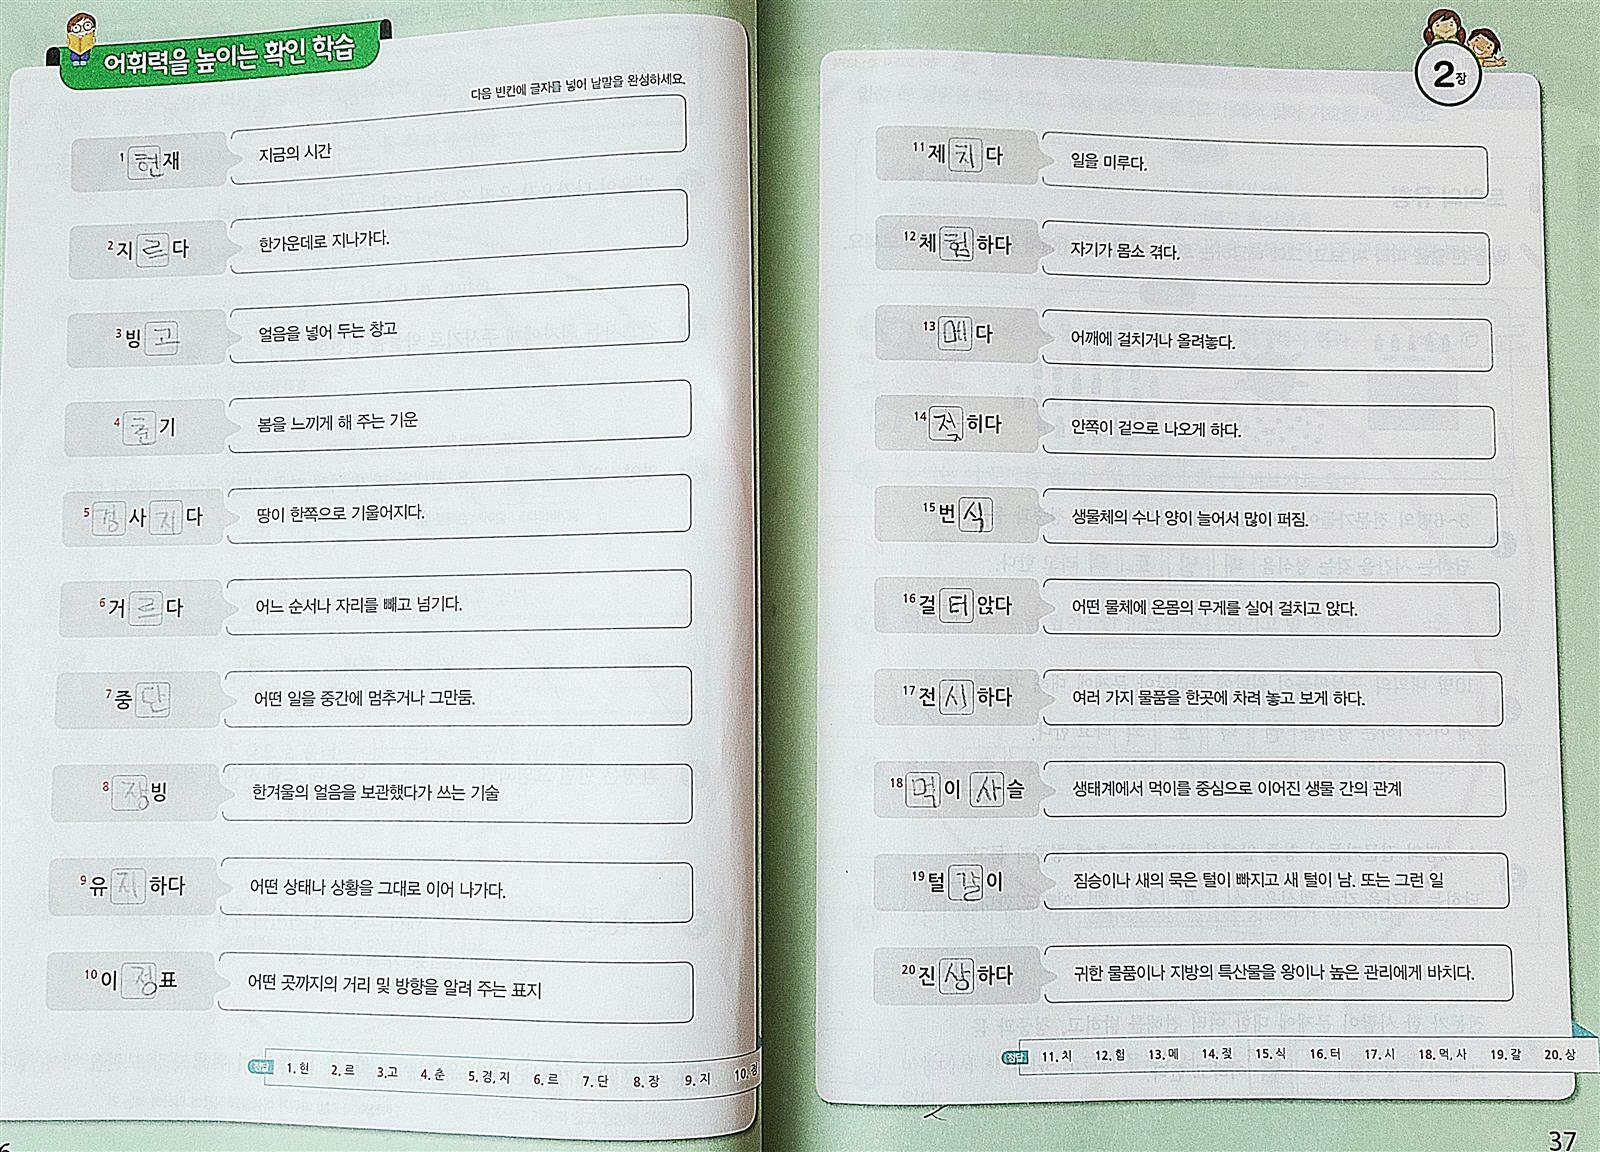 어휘력을 높이는 확인 학습
다음 빈칸에 글자를 넣어 낱말을 완성하세요.
1 현재 지금의 시간
2 지르다 한가운데로 지나가다.
3 빙고 얼음을 넣어 두는 창고
4 춘기 봄을 느끼게 해 주는 기운
5 경사지다 땅이 한쪽으로 기울어지다.
6 거르다 어느 순서나 자리를 빼고 넘기다.
7 중단 어떤 일을 중간에 멈추거나 그만둠.
8 장빙 한겨울의 얼음을 보관했다가 쓰는 기술
9 유지하다 어떤 상태나 상황을 그대로 이어 나가다.
10 이정표 어떤 곳까지의 거리 및 방향을 알려 주는 표지
정답 1. 현 2. 르 3. 고 4. 춘 5. 경, 지 6. 르 7. 단 8. 장 9. 지 10. 정
2장
11 제치다 일을 미루다.
12 체험하다 자기가 몸소 겪다.
13 메다 어깨에 걸치거나 올려놓다.
14 젖히다 안쪽이 겉으로 나오게 하다.
15 번식 생물체의 수나 양이 늘어서 많이 퍼짐.
16 걸터앉다 어떤 물체에 온몸의 무게를 실어 걸치고 앉다.
17 전시하다 여러 가지 물품을 한곳에 차려 놓고 보게 하다.
18 먹이 사슬 생태계에서 먹이를 중심으로 이어진 생물 간의 관계
19 털갈이 짐승이나 새의 묵은 털이 빠지고 새 털이 남. 또는 그런 일
20 진상하다 귀한 물품이나 지방의 특산물을 왕이나 높은 관리에게 바치다.
정답 11. 치 12. 험 13. 메 14. 젖 15. 식 16. 터 17. 시 18. 먹, 사 19. 갈 20. 상
37